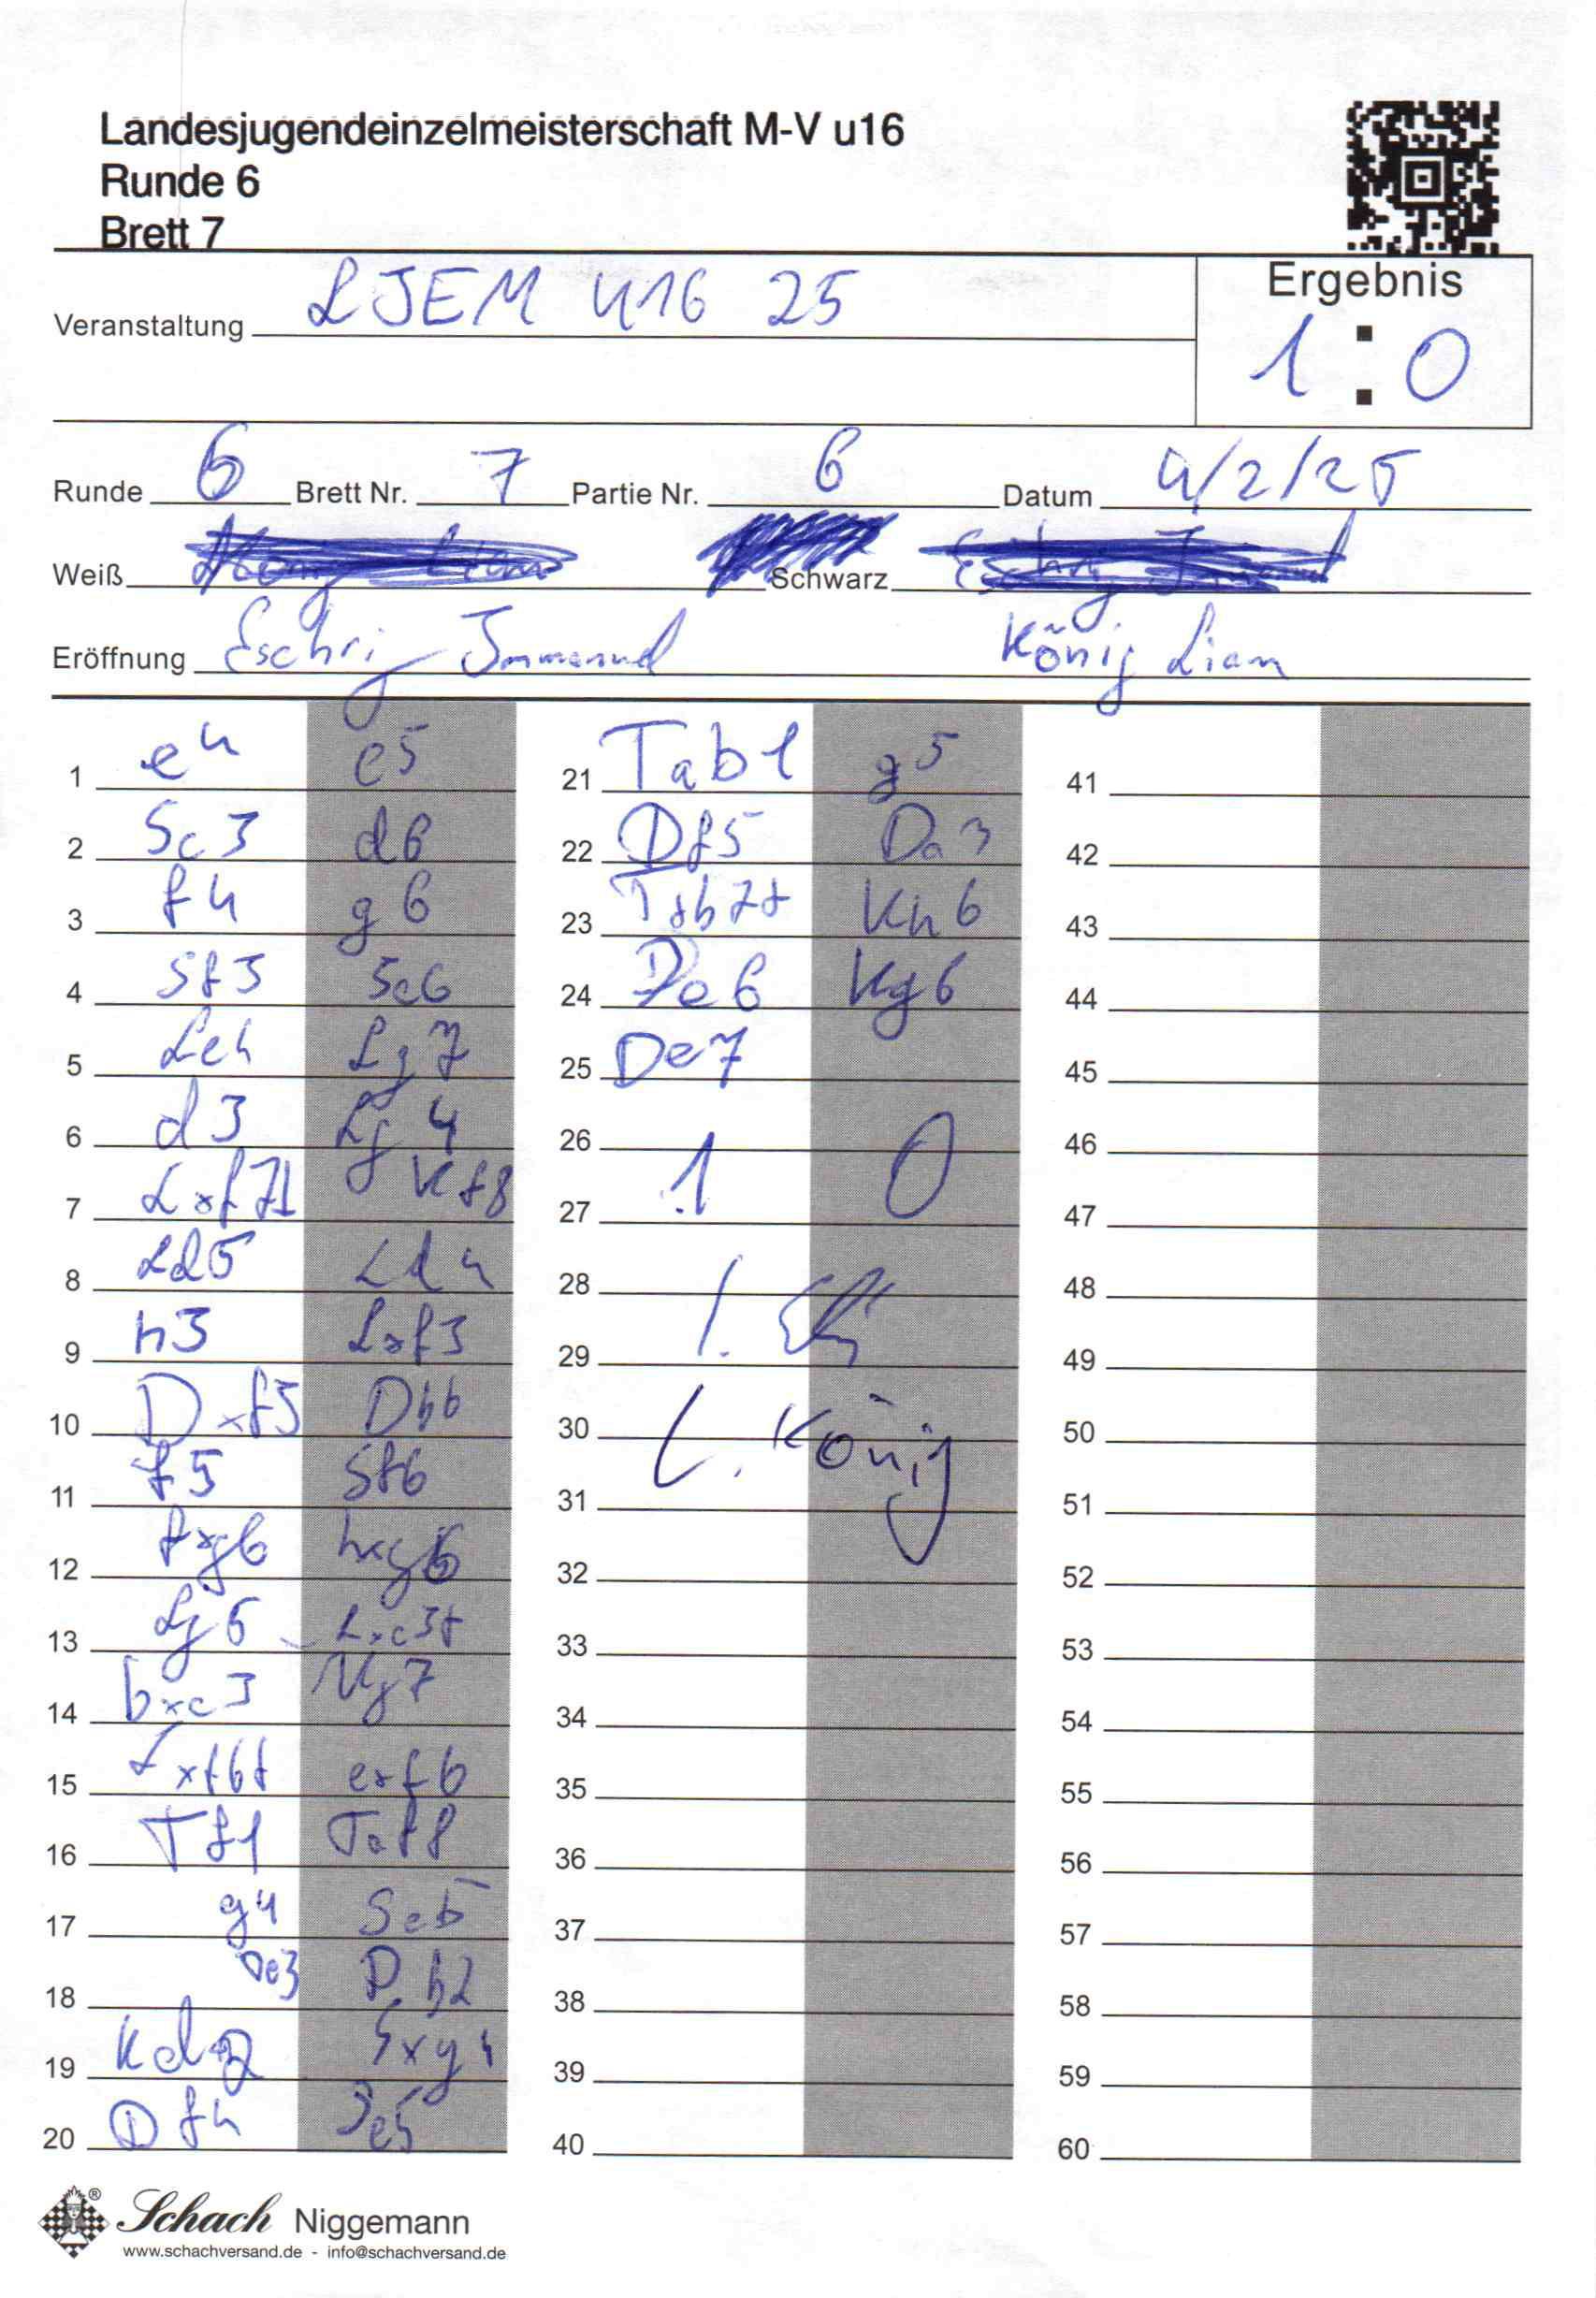 Landesjugendeinzelmeisterschaft M-V u16
Runde 6
Brett 7
Ergebnis
1 : 0
Veranstaltung LJEM U16 25
Runde 6 Brett Nr. 7 Partie Nr. 6 Datum 4/2/25
Weiß Schwarz
Eröffnung Eschrij Immanuel König Liam
1 e4 e5 21 Tab1 g5 41
2 Sc3 d6 22 Df5 Da3 42
3 f4 g6 23 Txb7+ Kh6 43
4 Sf3 Sc6 24 De6 Kg6 44
5 Lc4 Lg7 25 De7 45
6 d3 Lg4 26 1 0 46
7 Lxf7+ Kf8 27 47
8 Ld5 Ld4 28 I. 48
9 h3 Lxf3 29 49
10 Dxf3 Dh6 30 L. König 50
11 f5 Sf6 31 51
12 fxg6 hxg6 32 52
13 Lg5 Lxc3+ 33 53
14 bxc3 Kg7 34 54
15 Lxf6+ exf6 35 55
16 Tf1 Taf8 36 56
17 g4 Se5 37 57
18 De3 Db2 38 58
19 Kd2 Sxg4 39 59
20 Df4 Se5 40 60
Schach Niggemann
www.schachversand.de - info@schachversand.de